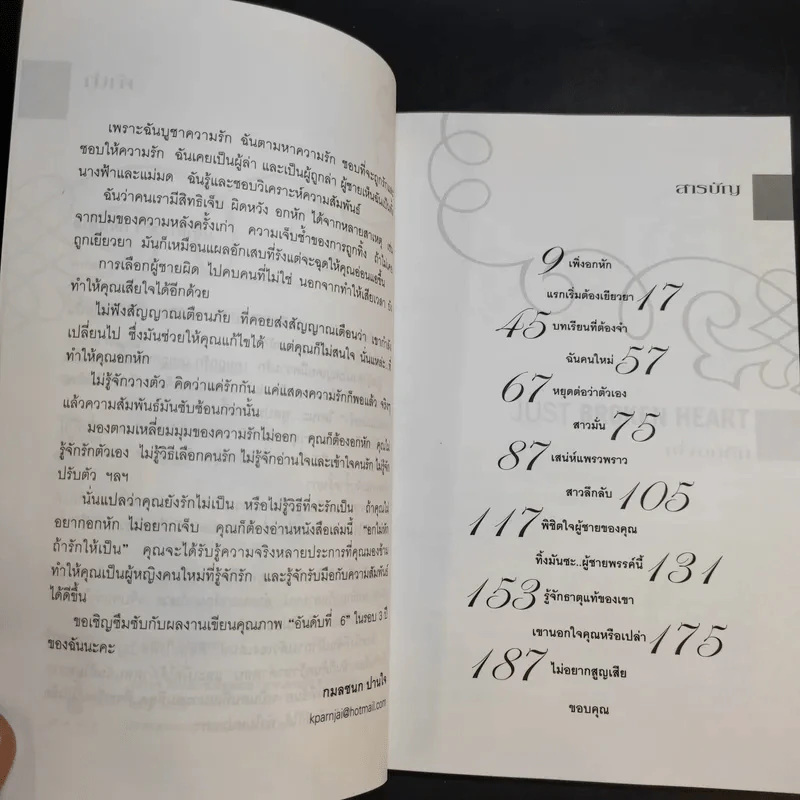 เพราะฉันบูชาความรัก ฉันตามหาความรัก ชอบที่จะถูกรักและ
ชอบให้ความรัก ฉันเคยเป็นผู้ล่า และเป็นผู้ถูกล่า ผู้ชายเห็นฉันเป็นทั้ง
นางฟ้าและแม่มด ฉันรู้และชอบวิเคราะห์ความสัมพันธ์
ฉันว่าคนเรามีสิทธิเจ็บ ผิดหวัง อกหัก ได้จากหลายสาเหตุ เช่น
จากปมของความหลังครั้งเก่า ความเจ็บช้ำของการถูกทิ้ง ถ้าไม่เคย
ถูกเยียวยา มันก็เหมือนแผลอักเสบที่รังแต่จะฉุดให้คุณอ่อนแอขึ้น
การเลือกผู้ชายผิด ไปคบคนที่ไม่ใช่ นอกจากทำให้เสียเวลา ยัง
ทำให้คุณเสียใจได้อีกด้วย
ไม่ฟังสัญญาณเตือนภัย ที่คอยส่งสัญญาณเตือนว่า เขากำลัง
เปลี่ยนไป ซึ่งมันช่วยให้คุณแก้ไขได้ แต่คุณก็ไม่สนใจ นั่นแหละ..ที่
ทำให้คุณอกหัก
ไม่รู้จักวางตัว คิดว่าแค่รักกัน แค่แสดงความรักก็พอแล้ว จริงๆ
แล้วความสัมพันธ์มันซับซ้อนกว่านั้น
มองตามเหลี่ยมมุมของความรักไม่ออก คุณก็ต้องอกหัก คุณไม่
รู้จักรักตัวเอง ไม่รู้วิธีเลือกคนรัก ไม่รู้จักอ่านใจและเข้าใจคนรัก ไม่รู้จัก
ปรับตัว ฯลฯ
นั่นแปลว่าคุณยังรักไม่เป็น หรือไม่รู้วิธีที่จะรักเป็น ถ้าคุณไม่
อยากอกหัก ไม่อยากเจ็บ คุณก็ต้องอ่านหนังสือเล่มนี้ “อกไม่หัก
ถ้ารักให้เป็น” คุณจะได้รับรู้ความจริงหลายประการที่คุณมองข้าม
ทำให้คุณเป็นผู้หญิงคนใหม่ที่รู้จักรัก และรู้จักรับมือกับความสัมพันธ์
ได้ดีขึ้น
ขอเชิญซึมซับกับผลงานเขียนคุณภาพ “อันดับที่ 6” ในรอบ 3 ปี
ของฉันนะคะ
กมลชนก ปานใจ
kparnjai@hotmail.com
สารบัญ
9 เพิ่งอกหัก
แรกเริ่มต้องเยียวยา 17
45 บทเรียนที่ต้องจำ
ฉันคนใหม่ 57
67 หยุดต่อว่าตัวเอง
สาวมั่น 75
87 เสน่ห์แพรวพราว
สาวลึกลับ 105
117 พิชิตใจผู้ชายของคุณ
ทิ้งมันซะ..ผู้ชายพรรค์นี้ 131
153 รู้จักธาตุแท้ของเขา
เขานอกใจคุณหรือเปล่า 175
187 ไม่อยากสูญเสีย
ขอบคุณ